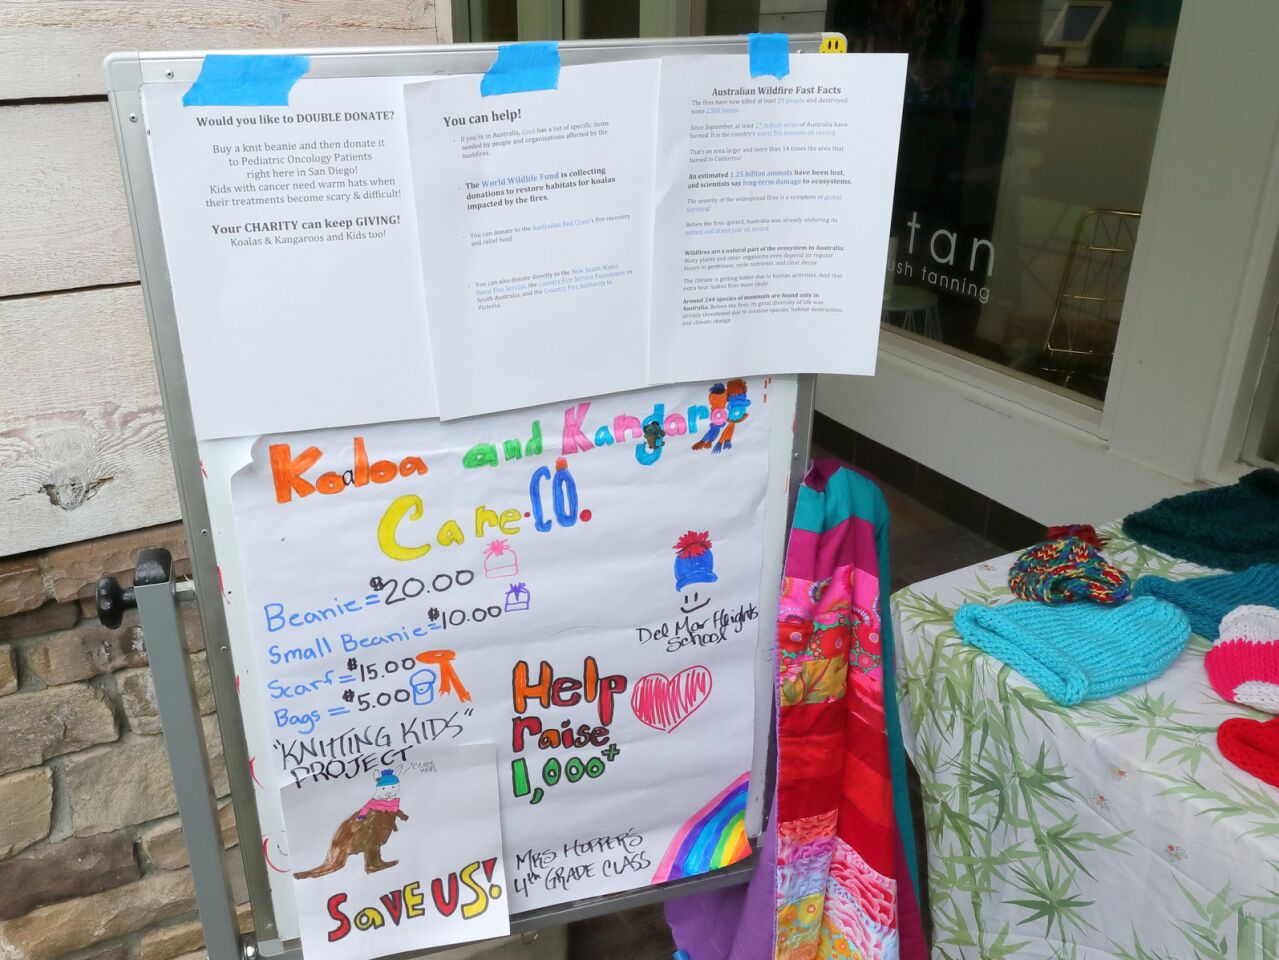 Would you like to DOUBLE DONATE?
Buy a knit beanie and then donate it
to Pediatric Oncology Patients
right here in San Diego!
Kids with cancer need warm hats when
their treatments become scary & difficult!
Your CHARITY can keep GIVING!
Koalas & Kangaroos and Kids too!
You can help!
If you're in Australia, Givit has a list of specific items
needed by people and organizations affected by the
bushfires.
The World Wildlife Fund is collecting
donations to restore habitats for koalas
impacted by the fires.
You can donate to the Australian Red Cross's fire recovery
and relief fund.
You can also donate directly to the New South Wales
Rural Fire Service, the Country Fire Service Foundation in
South Australia, and the Country Fire Authority in
Victoria.
Australian Wildfire Fast Facts
The fires have now killed at least 29 people and destroyed
some 2,500 homes.
Since September, at least 27 million acres of Australia have
burned. It is the country's worst fire seasons on record.
That's an area larger and more than 14 times the area that
burned in California!
An estimated 1.25 billion animals have been lost,
and scientists say long-term damage to ecosystems.
The severity of the widespread fires is a symptom of global
warming!
Before the fires ignited, Australia was already enduring its
hottest and driest year on record.
Wildfires are a natural part of the ecosystem in Australia.
Many plants and other organisms even depend on regular
blazes to germinate, cycle nutrients, and clear decay.
The climate is getting hotter due to human activities. And that
extra heat makes fires more likely.
Around 244 species of mammals are found only in
Australia. Before the fires, its great diversity of life was
already threatened due to invasive species, habitat destruction,
and climate change.
tan
ush tanning
Koaloa and Kangaroo
Care-CO.
Beanie=$20.00
Small Beanie=$10.00
Scarf=$15.00
Bags=$5.00
"KNITTING KIDS"
PROJECT
Del Mar Heights
School
Help
raise
1,000+
SAVE US!
MRS HOPPER'S
4th GRADE CLASS